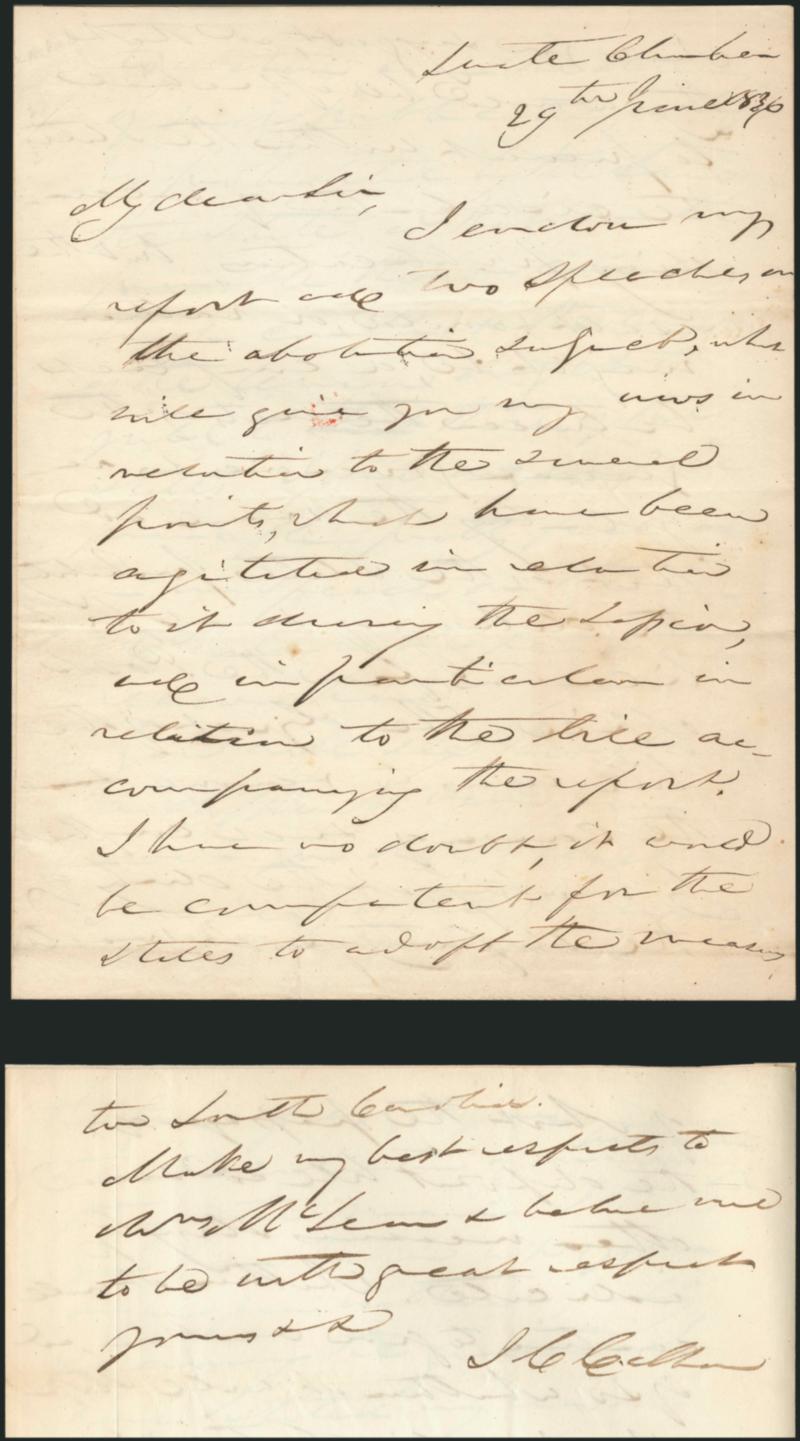 Senate Chamber
29th June 1836
My dear Sir,
I enclose my
report and two speeches on
the abolition subject, which
will give you my views in
relation to the several
points, which have been
agitated in relation
to it during the Session,
and in particular in
relation to the bill ac-
companying the report.
I have no doubt, it would
be competent for the
States to adopt the measures
South Carolina.
Make my best respects to
Mrs McLean & believe me
to be with great respect
yours &c &c
J. C. Calhoun